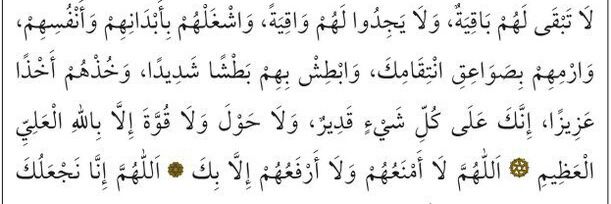 لَا تَبْقَى لَهُمْ بَاقِيَةٌ، وَلَا يَجِدُوا لَهُمْ وَاقِيَةً، وَاشْغَلْهُمْ بِأَبْدَانِهِمْ وَأَنْفُسِهِمْ،
وَارْمِهِمْ بِصَوَاعِقِ انْتِقَامِكَ، وَابْطِشْ بِهِمْ بَطْشًا شَدِيدًا، وَخُذْهُمْ أَخْذًا
عَزِيزًا، إِنَّكَ عَلَى كُلِّ شَيْءٍ قَدِيرٌ، وَلَا حَوْلَ وَلَا قُوَّةَ إِلَّا بِاللهِ الْعَلِيِّ
الْعَظِيمِ ۞ اَللّٰهُمَّ لَا أَمْنَعُهُمْ وَلَا أَرْفَعُهُمْ إِلَّا بِكَ ۞ اَللّٰهُمَّ إِنَّا نَجْعَلُكَ